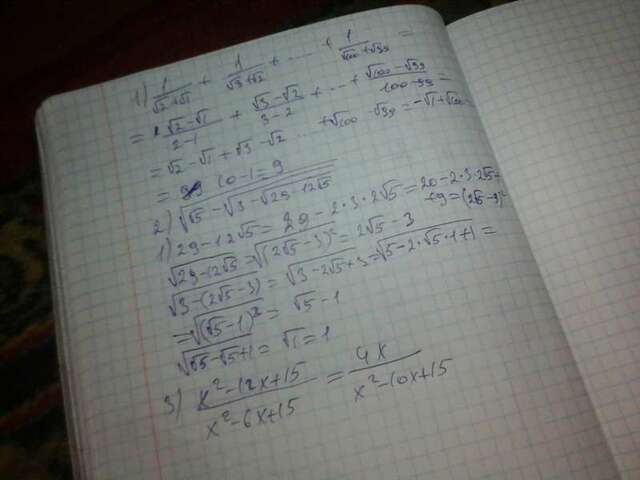 1) 1/(√2+√1) + 1/(√3+√2) + ... + 1/(√100+√99) =
= (√2-√1)/(2-1) + (√3-√2)/(3-2) + ... + (√100-√99)/(100-99) =
= √2-√1+√3-√2 ... +√100-√99 = -√1+√100 =
= 10-1=9
2) √(√5-√(3-√(29-12√5)))
1) 29-12√5 = 29-2·3·2√5 = 20-2·3·2√5+
+9=(2√5-3)²
√(29-12√5) = √((2√5-3)²) = 2√5-3
√(3-(2√5-3)) = √(3-2√5+3) = √(5-2·√5·1+1) =
= √((√5-1)²) = √5-1
√(√5-√5+1) = √1 = 1
3) (x²-12x+15)/(x²-6x+15) = 4x/(x²-10x+15)